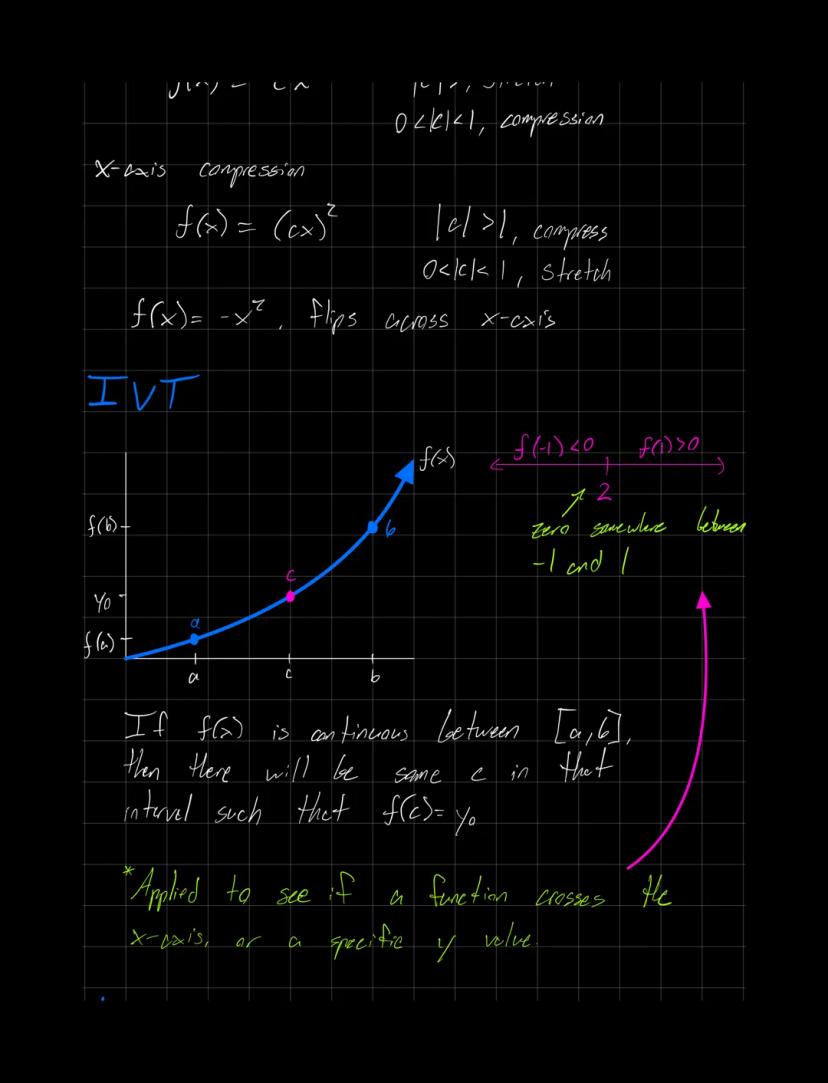 0<|c|<1, compression
X-axis compression
f(x) = (cx)² |c| >1, compress
0<|c|<1, stretch
f(x) = -x², flips across x-axis
IVT
f(x)
f(-1)<0 f(1)>0
2
zero somewhere between
-1 and 1
f(b)
b
c
y₀
a
f(a)
a c b
If f(x) is continuous between [a,b],
then there will be some c in that
interval such that f(c)= y₀
*Applied to see if a function crosses the
x-axis, or a specific y value.